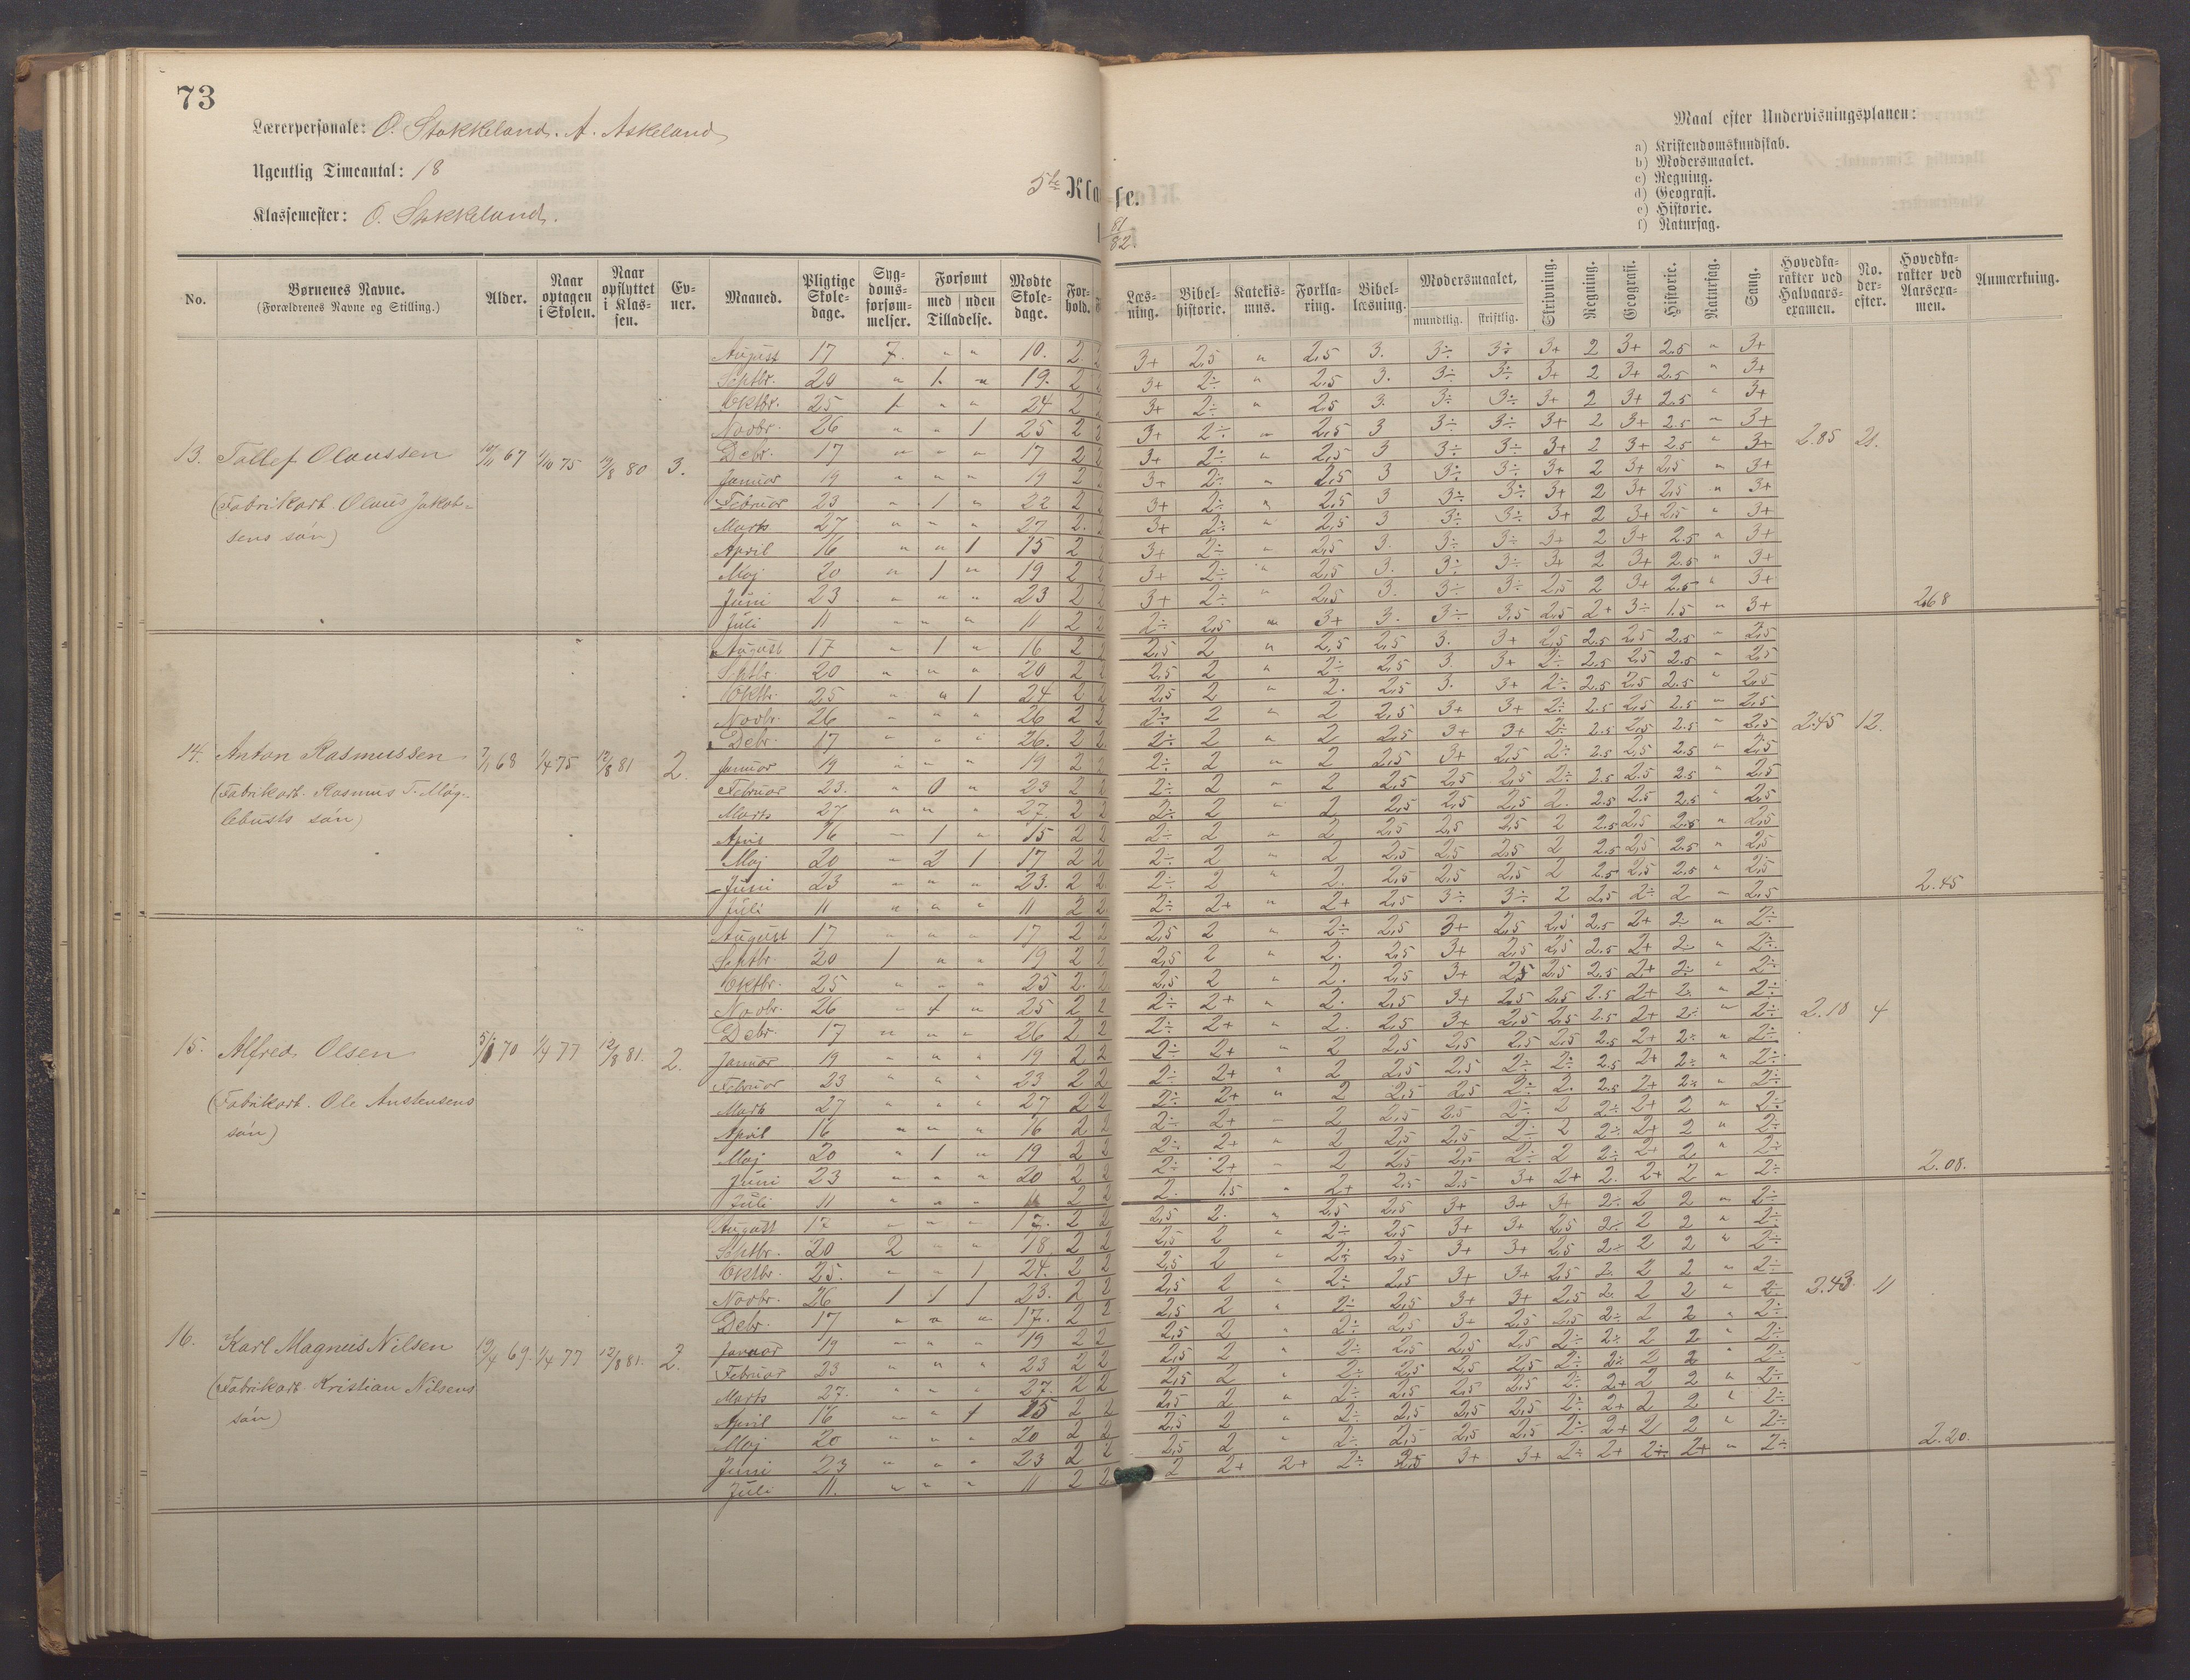 73
Lærerpersonale: O. Stokkeland. A. Askeland
Ugentlig Timeantal: 18
Klassemester: O. Stokkeland.
5te Klasse.
81/82.
Maal efter Undervisningsplanen:
a) Kristendomskundskab.
b) Modersmaalet.
c) Regning.
d) Geografi.
e) Historie.
f) Naturfag.
No. Børnenes Navne. (Forældrenes Navne og Stilling.) Alder. Naar optagen i Skolen. Naar opflyttet i Klassen. Evner. Maaned. Pligtige Skoledage. Sygdomsforsømmelser. Forsømt med uden Tilladelse. Mødte Skoledage. Forhold.
Læsning. Bibelhistorie. Katekismus. Forklaring. Bibellæsning. Modersmaalet, mundtlig. skriftlig. Skrivning. Regning. Geografi. Historie. Naturfag. Sang. Hovedkarakter ved Halvaarsexamen. No. derefter. Hovedkarakter ved Aarsexamen. Anmærkning.
August 17 7. " " 10. 2. 2 3+ 2,5 " 2,5 3. 3÷ 3÷ 3+ 2 3+ 2.5 " 3+
Septbr. 20 " 1. " 19. 2 2 3+ 2÷ " 2,5 3. 3÷ 3÷ 3+ 2 3+ 2.5 " 3+
Oktbr. 25 1 " " 24 2 2 3+ 2÷ " 2,5 3. 3÷ 3÷ 3+ 2 3+ 2.5 " 3+
Novbr. 26 " " 1 25 2 2 3+ 2÷ " 2,5 3 3÷ 3÷ 3+ 2 3+ 2.5 " 3+
13. Tollef Olaussen 10/11 67 1/10 75 12/8 80 3. Debr. 17 " " " 17 2 2 3+ 2÷ " 2,5 3 3÷ 3÷ 3+ 2 3+ 2.5 " 3+ 2.85 21.
Januar 19 " " " 19 2 2 3+ 2÷ " 2,5 3 3÷ 3÷ 3+ 2 3+ 2,5 " 3+
(Fabrikarb. Olaus Jakob- Februar 23 " 1 " 22 2 2 3+ 2÷ " 2,5 3 3÷ 3÷ 3+ 2 3+ 2,5 " 3+
Marts 27 " " " 27 2. 2 3+ 2÷ " 2,5 3 3÷ 3÷ 3+ 2 3+ 2,5 " 3+
sens søn) April 16 " " 1 15 2 2 3+ 2÷ " 2,5 3. 3÷ 3÷ 3+ 2 3+ 2.5 " 3+
Maj 20 " 1 " 19 2 2 3+ 2÷ " 2,5 3. 3÷ 3÷ 3+ 2 3+ 2.5 " 3+
Juni 23 " " " 23 2 2 3+ 2÷ " 2,5 3. 3÷ 3÷ 2,5 2 3+ 2.5 " 3+
Juli 11 " " " 11 2 2 2÷ 2,5 " 3+ 3. 3÷ 3,5 2,5 2+ 3÷ 1.5 " 3+ 2.68
August 17 " 1 " 16 2 2 2,5 2 " 2,5 2,5 3. 3+ 2,5 2.5 2,5 2.5 " 2,5
Septbr. 20 " " " 20 2 2 2,5 2 " 2÷ 2,5 3. 3+ 2÷ 2.5 2,5 2.5 " 2,5
Oktbr. 25 " " 1 24 2 2 2,5 2 " 2. 2,5 3. 3+ 2÷ 2.5 2,5 2.5 " 2,5
Novbr. 26 " " " 26 2 2 2÷ 2 " 2 2,5 3+ 3+ 2÷ 2.5 2,5 2.5 " 2,5
Debr. 17 " " " 26. 2 2. 2÷ 2 " 2 2,5 3+ 3+ 2÷ 2.5 2,5 2.5 " 2,5 2.45 12.
14. Anton Rasmussen 7/1 68 1/4 75 12/8 81 2. Januar 19 " " " 19 2 2 2÷ 2 " 2 2,5 3+ 2,5 2÷ 2.5 2,5 2.5 " 2,5
(Fabrikarb. Rasmus T. Møg- Februar 23. " 0 " 23 2 2 2÷ 2 " 2 2,5 2,5 2,5 2÷ 2.5 2.5 2.5 " 2,5
lebusts søn) Marts 27 " " " 27. 2 2 2÷ 2 " 2 2,5 2,5 2,5 2. 2.5 2.5 2.5 " 2,5
April 16 " 1 " 15 2 2 2÷ 2 " 2 2,5 2,5 2,5 2 2.5 2,5 2.5 " 2,5
Maj 20 " 2 1 17 2 2 2÷ 2 " 2 2,5 2,5 2,5 2 2.5 2,5 2.5 " 2,5
Juni 23 " " " 23. 2 2. 2÷ 2 " 2. 2,5 2,5 2,5 2 2.5 2,5 2.5 " 2,5
Juli 11 " " " 11 2 2. 2÷ 2+ " 2+ 2,5 3÷ 3÷ 2 2,5 2÷ 2 " 2,5 2.45
August 17 " " " 17 2 2 2,5 2 " 2÷ 2,5 3+ 2,5 2,5 2.5 2+ 2÷ " 2÷
Septbr. 20 1 " " 19 2 2 2,5 2 " 2. 2,5 3+ 2,5 2,5 2.5 2+ 2÷ " 2÷
Oktbr. 25 " " " 25 2. 2. 2,5 2 " 2. 2,5 3+ 2,5 2,5 2.5 2+ 2÷ " 2÷
Novbr. 26 " 1 " 25 2 2 2÷ 2+ " 2. 2,5 3+ 2,5 2,5 2.5 2+ 2. " 2÷
Debr. 17 " " " 26 2 2 2÷ 2+ " 2. 2,5 3+ 2,5 2,5 2.5 2+ 2÷ " 2÷ 2.18 4
15. Alfred Olsen 5/1 70 1/4 77 12/8 81. 2. Januar 19 " " " 19 2 2 2÷ 2+ " 2 2,5 2,5 2,5 2,5 2.5 2+ 2÷ " 2÷
Februar 23 " " " 23 2 2 2÷ 2+ " 2 2,5 2,5 2÷ 2÷ 2.5 2+ 2÷ " 2÷
(Fabrikarb. Ole Austensens Marts 27 " " " 27 2 2 2÷ 2+ " 2 2,5 2,5 2÷ 2. 2.5 2+ 2÷ " 2÷
søn) April 16 " " " 16 2 2 2÷ 2+ " 2 2,5 2,5 2÷ 2 2÷ 2+ 2 " 2÷
Maj 20 " 1 " 19 2 2 2÷ 2+ " 2 2,5 2,5 2÷ 2 2÷ 2+ 2 " 2÷
Juni 23 " " " 20 2 2 2÷ 2+ " 2 2,5 2,5 2÷ 2 2÷ 2+ 2 " 2÷
Juli 11 " " " 11 2 2 2. 1.5 " 2+ 2,5 2.5 3+ 2+ 2. 2+ 2 " 2÷ 2.08.
August 17 " " " 17. 2 2 2,5 2. " 2,5 2,5 3+ 3+ 3+ 2÷ 2 2 " 2÷
Septbr. 20 2 " " 18 2 2 2,5 2 " 2÷ 2,5 3+ 3+ 2,5 2÷ 2 2 " 2÷
Oktbr. 25. " " 1 24. 2 2 2,5 2 " 2÷ 2,5 3+ 3+ 2,5 2÷ 2 2 " 2÷
Novbr. 26 1 1 1 23. 2 2 2,5 2 " 2÷ 2,5 3+ 3+ 2,5 2. 2 2 " 2÷
Debr. 17 " " " 17. 2 2 2,5 2 " 2÷ 2,5 3+ 3+ 2,5 2. 2 2 " 2÷ 2.43. 11
16. Karl Magnus Nilsen 19/4 69. 1/4 77 12/8 81. 2. Januar 19 " " " 19 2 2 2,5 2 " 2÷ 2,5 3+ 2,5 2,5 2÷ 2 2 " 2÷
Februar 23 " " " 23 2 2 2,5 2 " 2÷ 2,5 2,5 2,5 2÷ 2÷ 2 2 " 2÷
(Fabrikarb. Kristian Nilsens Marts 27. " " " 27. 2 2 2,5 2 " 2÷ 2,5 2,5 2,5 2÷ 2÷ 2 2 " 2÷
søn) April 16 " " 1 15 2 2 2,5 2 " 2÷ 2,5 2,5 2,5 2÷ 2+ 2 2 " 2÷
Maj 20 " " " 20 2 2 2,5 2 " 2÷ 2,5 2,5 2,5 2÷ 2+ 2 2 " 2÷
Juni 23 " " " 23 2 2 2,5 2 " 2÷ 2,5 2,5 2,5 2÷ 2+ 2 2 " 2÷
Juli 11. " " " 11 2 2 2 2+ 2+ 2÷ 2,5 3+ 3+ 2÷ 2+ 2÷ 2+ " 2÷ 2.20.